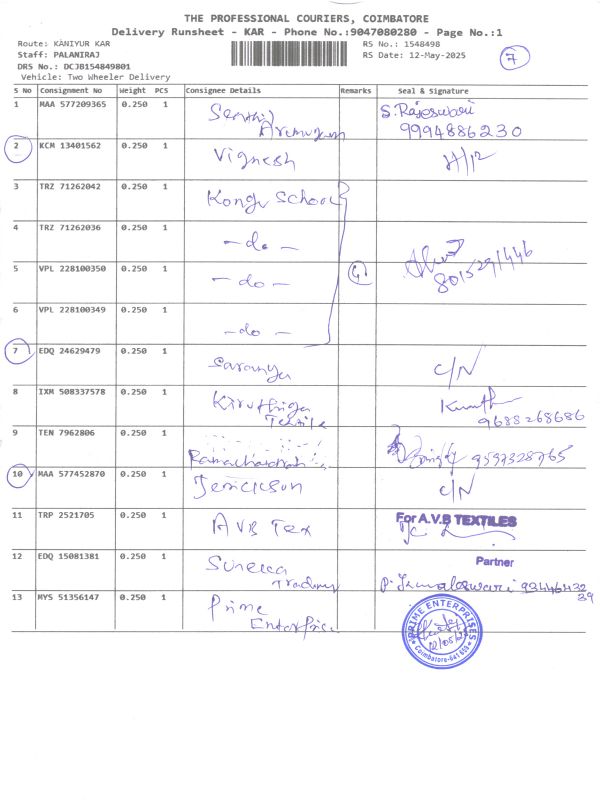 THE PROFESSIONAL COURIERS, COIMBATORE
Delivery Runsheet - KAR - Phone No.:9047080280 - Page No.:1
Route: KANIYUR KAR RS No.: 1548498
Staff: PALANIRAJ RS Date: 12-May-2025 7
DRS No.: DCJB154849801
Vehicle: Two Wheeler Delivery
S No Consignment No Weight PCS Consignee Details Remarks Seal & Signature
1 MAA 577209365 0.250 1 Senthil S.Rajeswari
Arumugam 9994886230
2 KCM 13401562 0.250 1 Vignesh H/12
3 TRZ 71262042 0.250 1 Kongu School
4 TRZ 71262036 0.250 1 - do -
5 VPL 228100350 0.250 1 - do - 4 8015291446
6 VPL 228100349 0.250 1 - do -
7 EDQ 24629479 0.250 1 Saranya C/N
8 IXM 508337578 0.250 1 Kiruthiga
Textile 9688268686
9 TEN 7962806 0.250 1 9597328765
10 MAA 577452870 0.250 1 Jerickson C/N
11 TRP 2521705 0.250 1 AVB Tex For A.V.B TEXTILES
12 EDQ 15081381 0.250 1 Partner
Traders
13 MYS 51356147 0.250 1 Prime
Enterprise
PRIME ENTERPRISES
12/05/25
Coimbatore-641 659